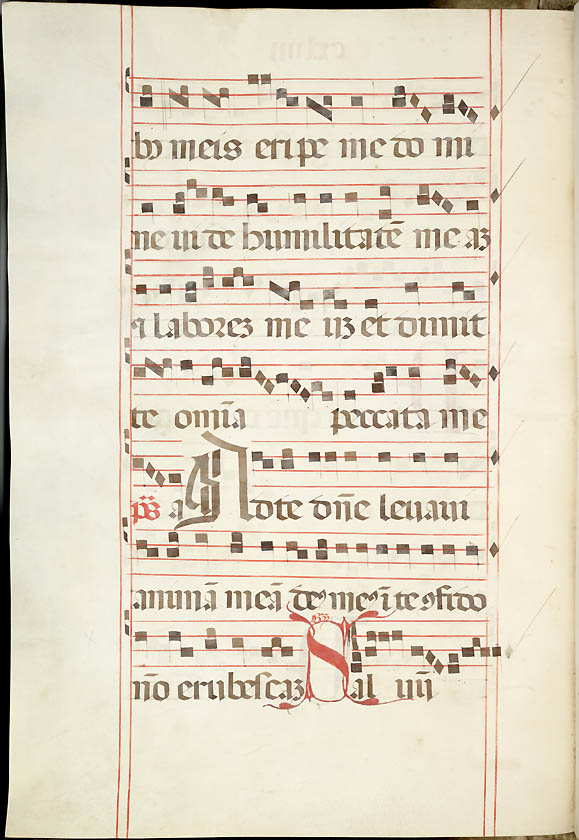 bꝯ meis eripe me do mi
ne ui de humilitatē me aʒ
⁊ laboreʒ me uʒ et dimit
te om̄ia peccata me
ps̄ a Ad te dn̄e leuaui
animā meā deꝰ meꝰ ī te ꝯfido
nō erubescaʒ Sal uū